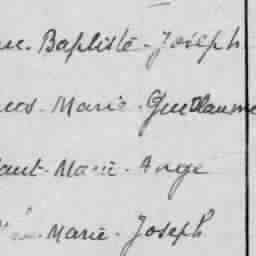 Baptiste - Joseph
Marie - Guillaume
Marie - Ange
Marie - Joseph